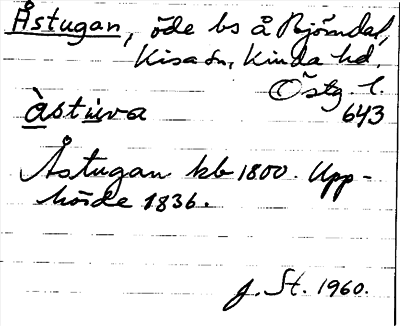 Åstugan, öde bs å Björndal,
Kisa sn, Kinda hd.
Östg. l.
àstùva 643
Åstugan kb 1800. Upp-
hörde 1836.
J. St. 1960.